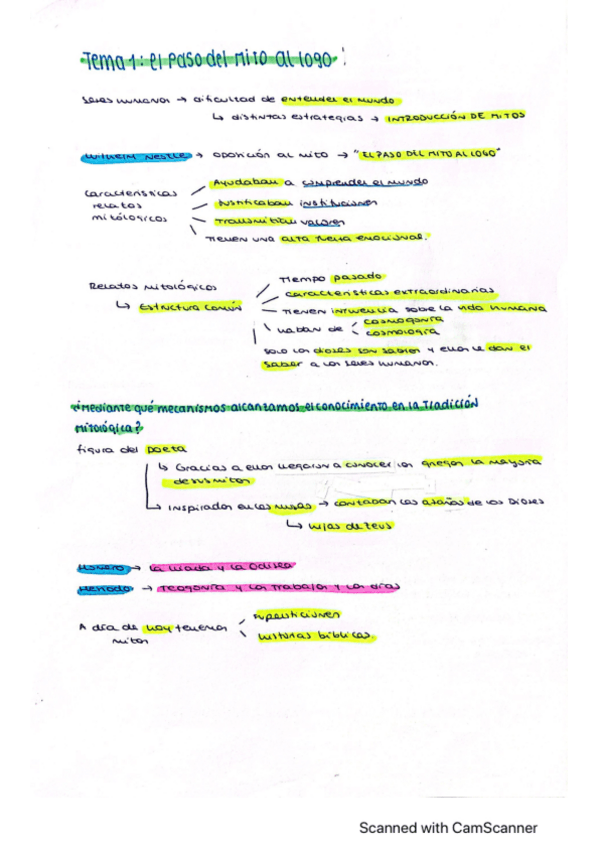 Tema 1: el paso del mito al logo:
seres humanos → dificultad de entender el mundo
↳ distintas estrategias → INTRODUCCIÓN DE MITOS
Wilhelm Nestle → oposición al mito → "EL PASO DEL MITO AL LOGO"
características relatos mitológicos
Ayudaban a comprender el mundo
Justificaban instituciones
Transmitían valores
Tienen una alta fuerza emocional.
Relatos mitológicos
↳ Estructura común
Tiempo pasado
características extraordinarias
Tienen influencia sobre la vida humana
hablan de
cosmogonía
cosmología
solo los dioses son sabios y ellos le dan el
saber a los seres humanos.
¿Mediante qué mecanismos alcanzamos el conocimiento en la tradición
mitológica?
figura del poeta
↳ Gracias a ellos llegaron a conocer los griegos la mayoría
de sus mitos
↳ Inspirados en las musas → contaban las azañas de los Dioses
↳ hijas de Zeus
Homero → La Iliada y la Odisea
Hesíodo → Teogonía y los trabajos y los días
A día de hoy tenemos
mitos
supersticiones
historias bíblicas.
Scanned with CamScanner